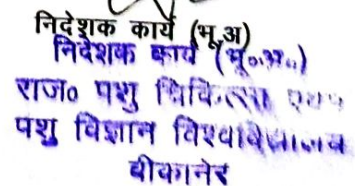 निदेशक कार्य (भू.अ)
निदेशक कार्य (भू०अ०)
राज० पशु चिकित्सा एवम
पशु विज्ञान विश्वविद्यालय
बीकानेर